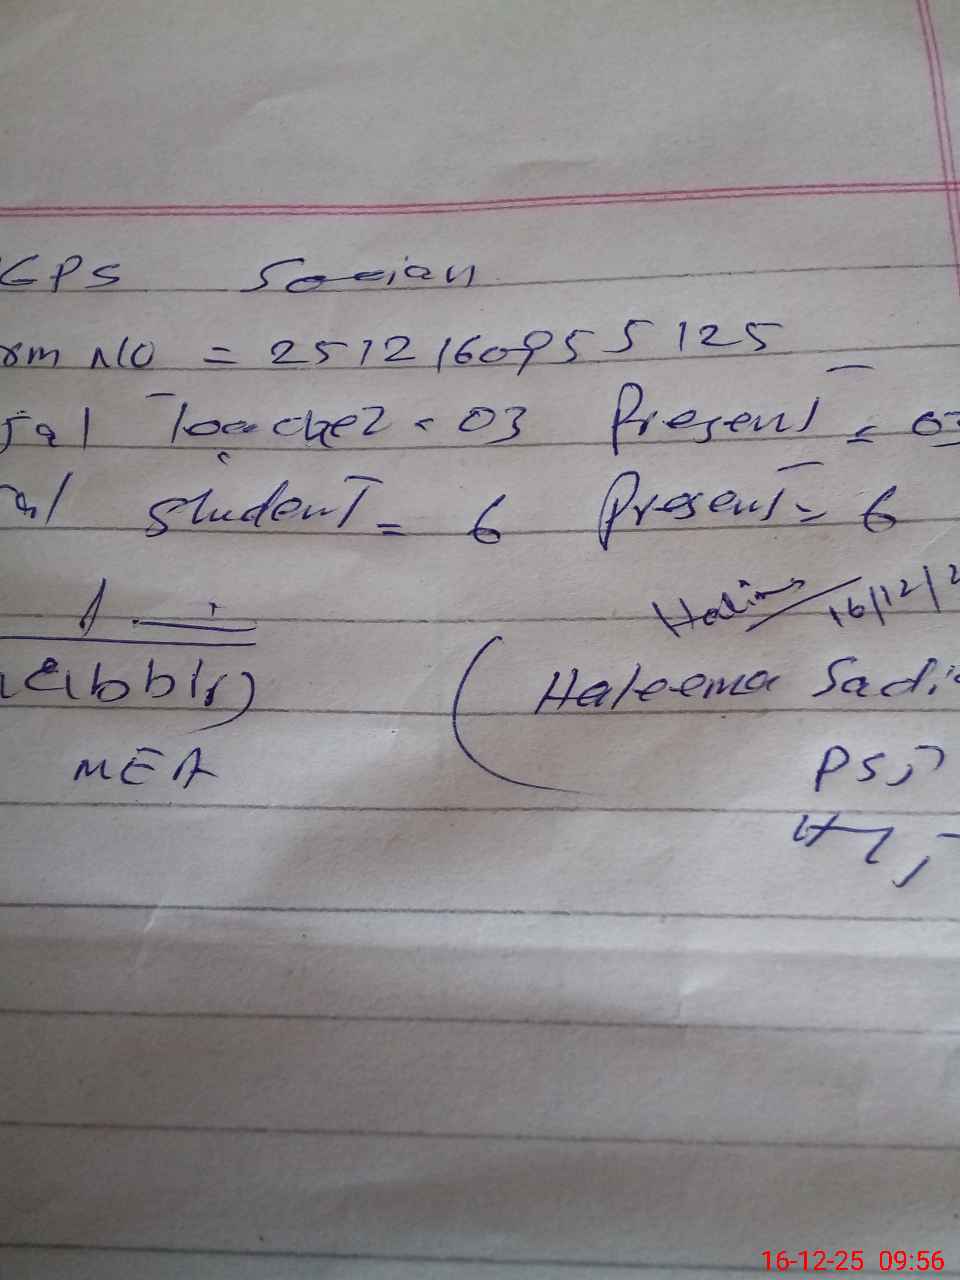 GPS Socian
rm NO = 2512160955125
tal Teacher = 03 Present = 03
al student = 6 Present = 6
16/12/2
abbir)
(Haleema Sadi
MEA
PST
16-12-25 09:56